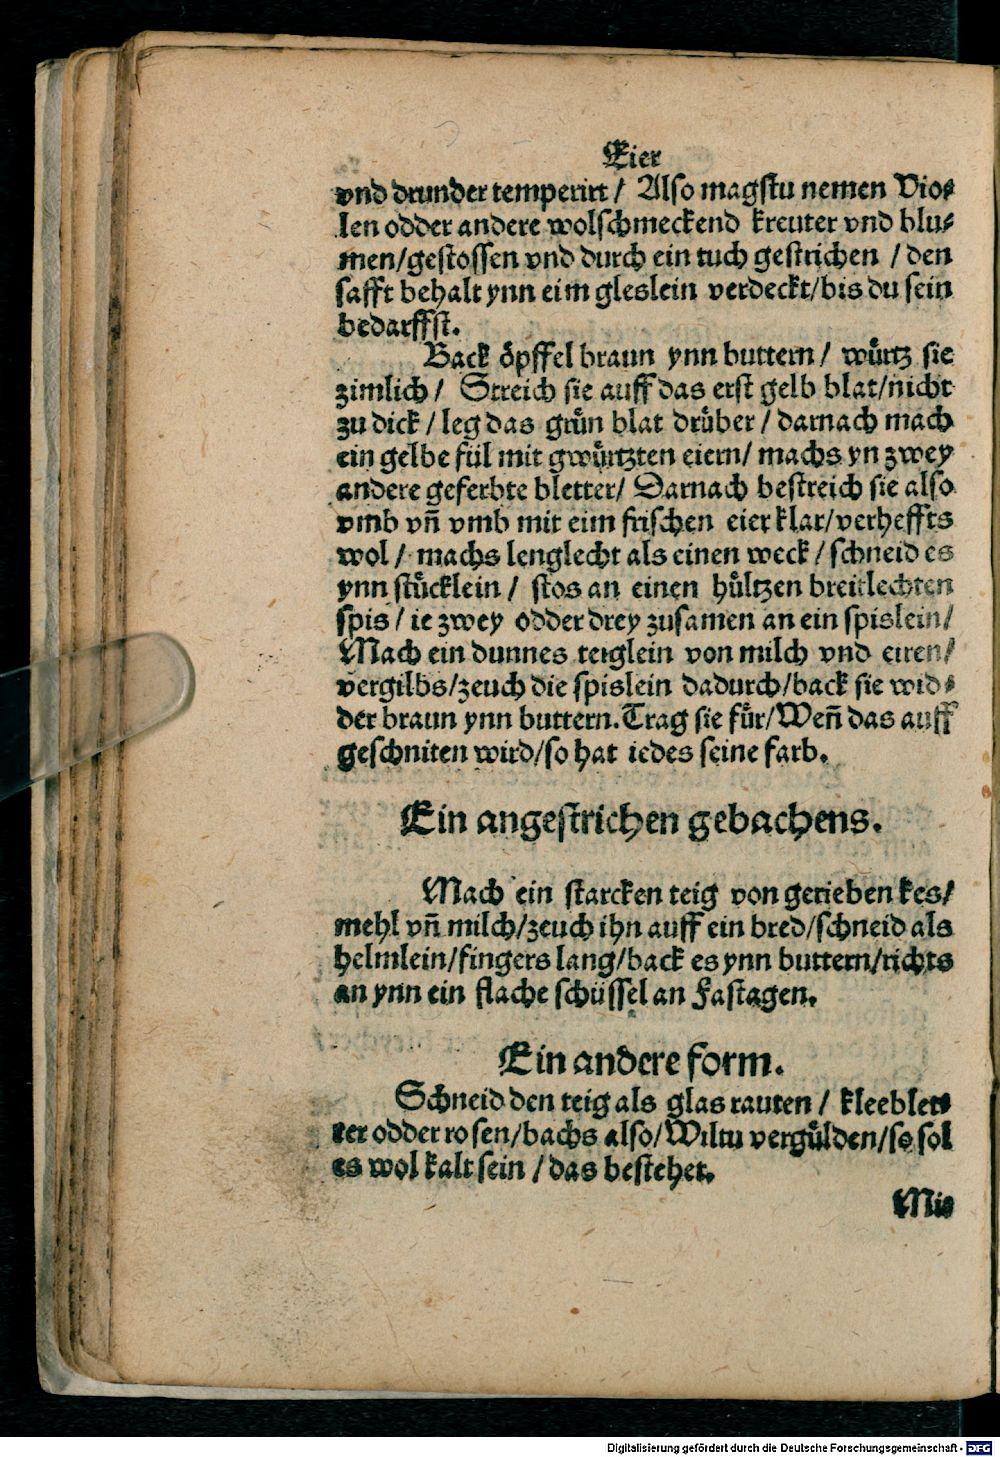 Eier
vnd drunder temperirt / Also magstu nemen Vio⸗
len odder andere wolschmeckend kreuter vnd blu⸗
men/gestossen vnd durch ein tuch gestrichen / den
safft behalt ynn eim gleslein verdeckt/bis du sein
bedarffst.
Back oͤpffel braun ynn buttern / wuͤrtz sie
zimlich / Streich sie auff das erst gelb blat/nicht
zu dick / leg das gruͤn blat druͤber / darnach mach
ein gelbe fuͤl mit gwuͤrtzten eiern/ machs yn zwey
andere geferbte bletter/ Darnach bestreich sie also
vmb vn̄ vmb mit eim frischen eier klar/verheffts
wol / machs lenglecht als einen weck / schneid es
ynn stuͤcklein / stos an einen huͤltzen breitlechten
spis / ie zwey odder drey zusamen an ein spislein/
Mach ein dunnes teiglein von milch vnd eiren/
vergilbs/zeuch die spislein dadurch/back sie wid⸗
der braun ynn buttern. Trag sie fuͤr/Wen̄ das auff
geschniten wird/so hat iedes seine farb.
Ein angestrichen gebachens.
Mach ein starcken teig von gerieben kes/
mehl vn̄ milch/zeuch ihn auff ein bred/schneid als
helmlein/fingers lang/back es ynn buttern/richts
an ynn ein flache schüssel an Fastagen.
Ein andere form.
Schneid den teig als glas rauten / kleeblet⸗
ter odder rosen/bachs also/Wiltu verguͤlden/so sol
es wol kalt sein / das bestehet.
Mis
Digitalisierung gefördert durch die Deutsche Forschungsgemeinschaft - DFG